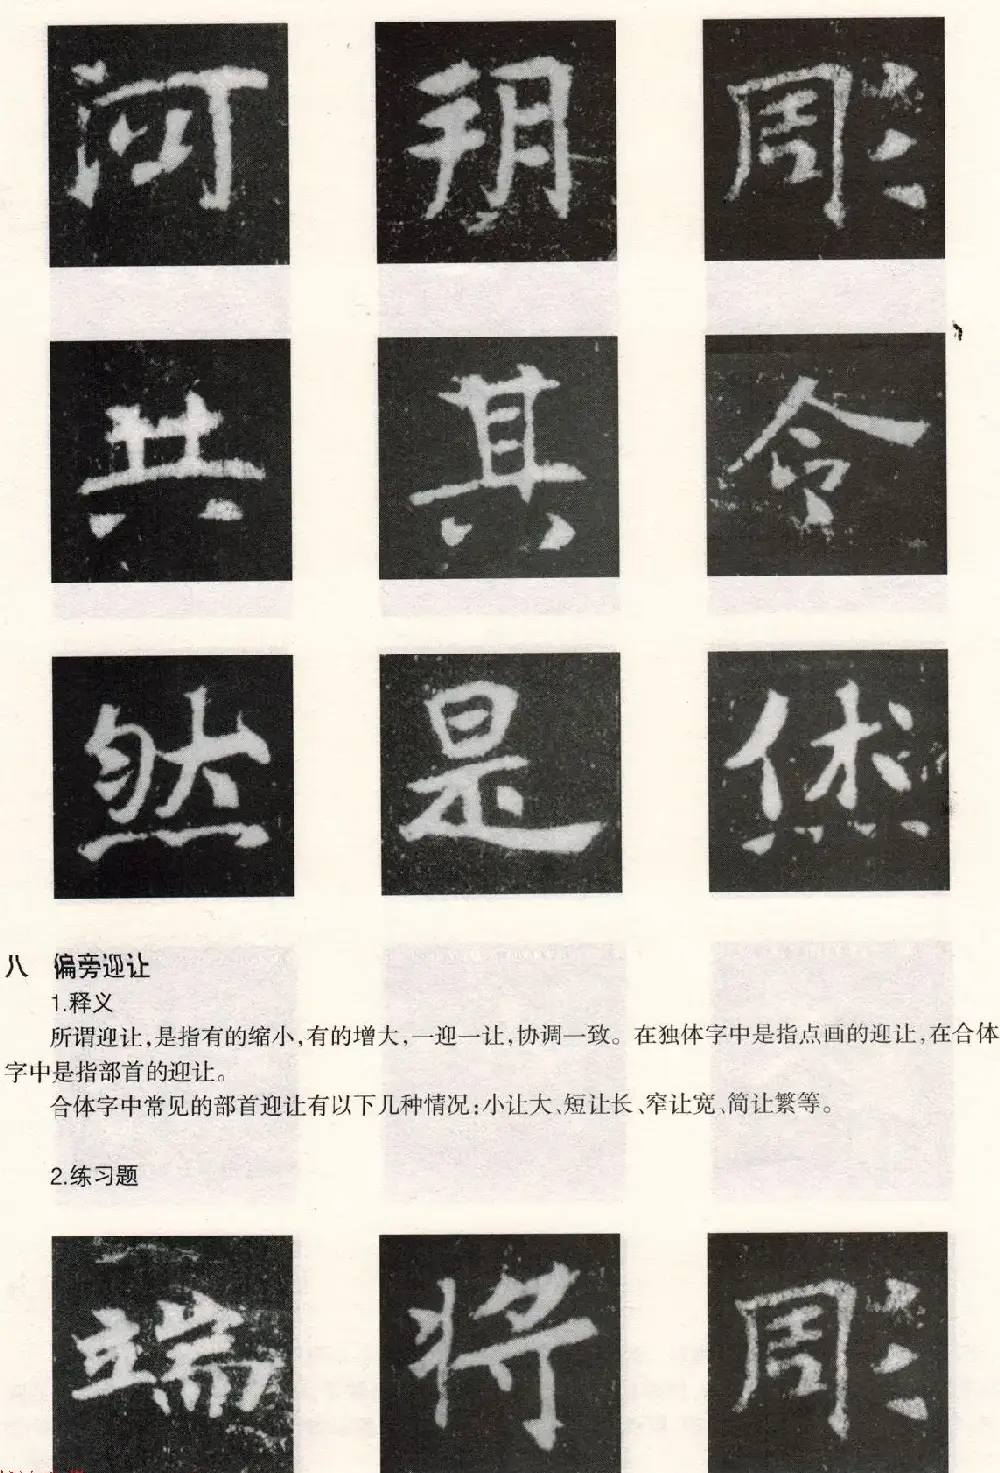 河 朔 彫
共 其 令
然 是 烋
八 偏旁迎让
1.释义
所谓迎让,是指有的缩小,有的增大,一迎一让,协调一致。在独体字中是指点画的迎让,在合体
字中是指部首的迎让。
合体字中常见的部首迎让有以下几种情况:小让大、短让长、窄让宽、简让繁等。
2.练习题
端 将 彫